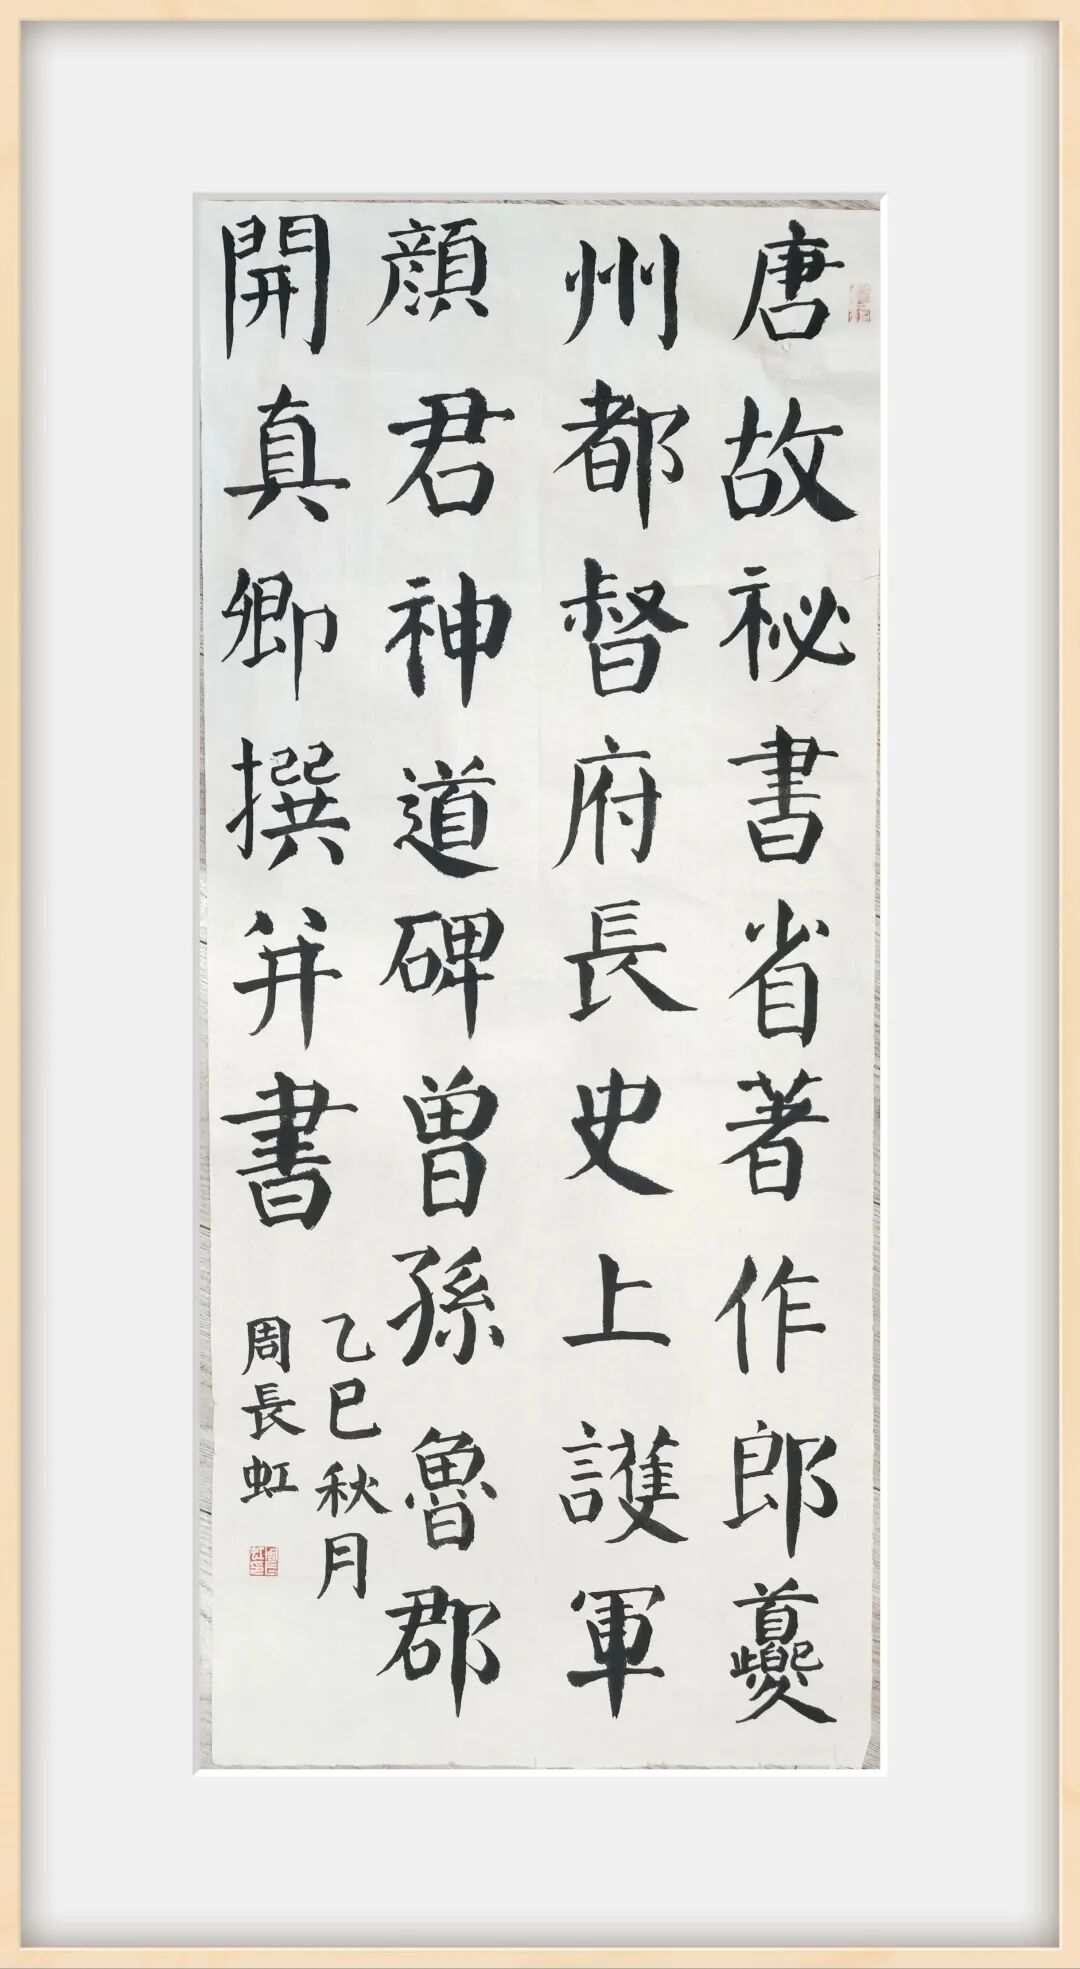 唐故祕書省著作郎夔
州都督府長史上護軍
顏君神道碑曾孫魯郡
開真卿撰并書
乙巳秋月
周長虹